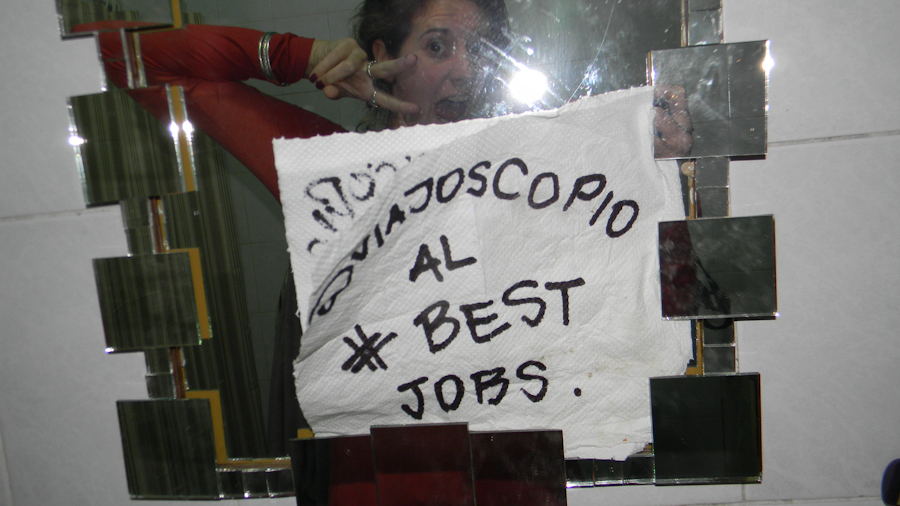 @VIAJOSCOPIO
AL
# BEST
JOBS.